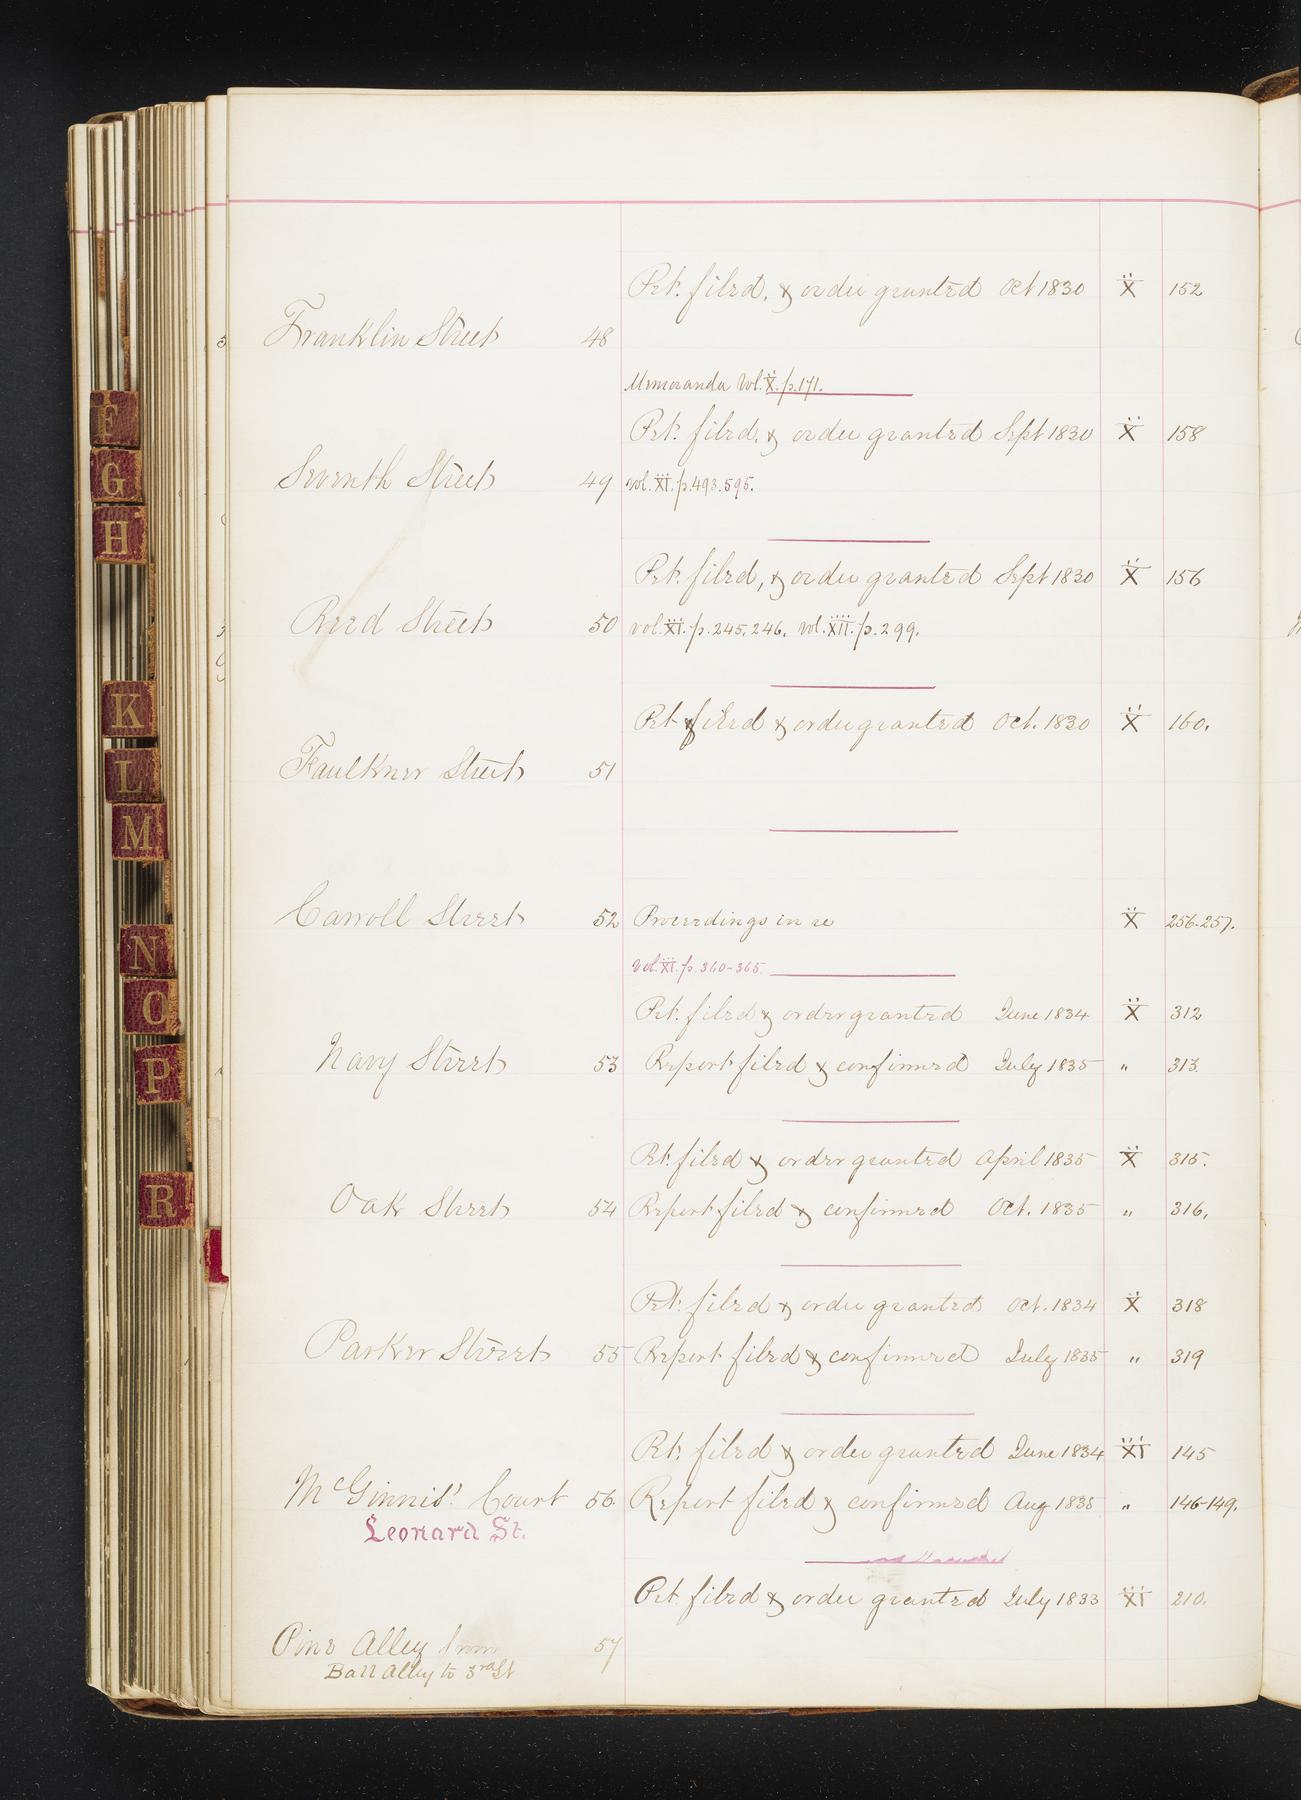 Pet. filed, & order granted Oct 1830 X 152
Franklin Street 48
Memoranda Vol. X. p. 171.
Pet. filed, & order granted Sept 1830 X 158
Seventh Street 49 vol. XI. p. 493. 595.
Pet. filed, & order granted Sept 1830 X 156
Reed Street 50 vol. XI. p. 245, 246, vol. XII. p. 299.
Pet filed & order granted Oct. 1830 X 160.
Faulkner Street 51
Carroll Street 52 Proceedings in re X 256-257.
vol. XI. p. 360-365.
Pet. filed & order granted June 1834 X 312
Navy Street 53 Report filed & confirmed July 1835 " 313.
Pet. filed & order granted April 1835 X 315.
Oak Street 54 Report filed & confirmed Oct. 1835 " 316.
Pet. filed & order granted Oct. 1834 X 318
Parker Street 55 Report filed & confirmed July 1835 " 319
Pet. filed & order granted June 1834 XI 145
McGinnis' Court 56 Report filed & confirmed Aug 1835 " 146-149.
Leonard St.
Pet filed & order granted July 1833 XI 210.
Pine Alley from 57
Ball Alley to 3rd St
F
G
H
K
L
M
N
O
P
R